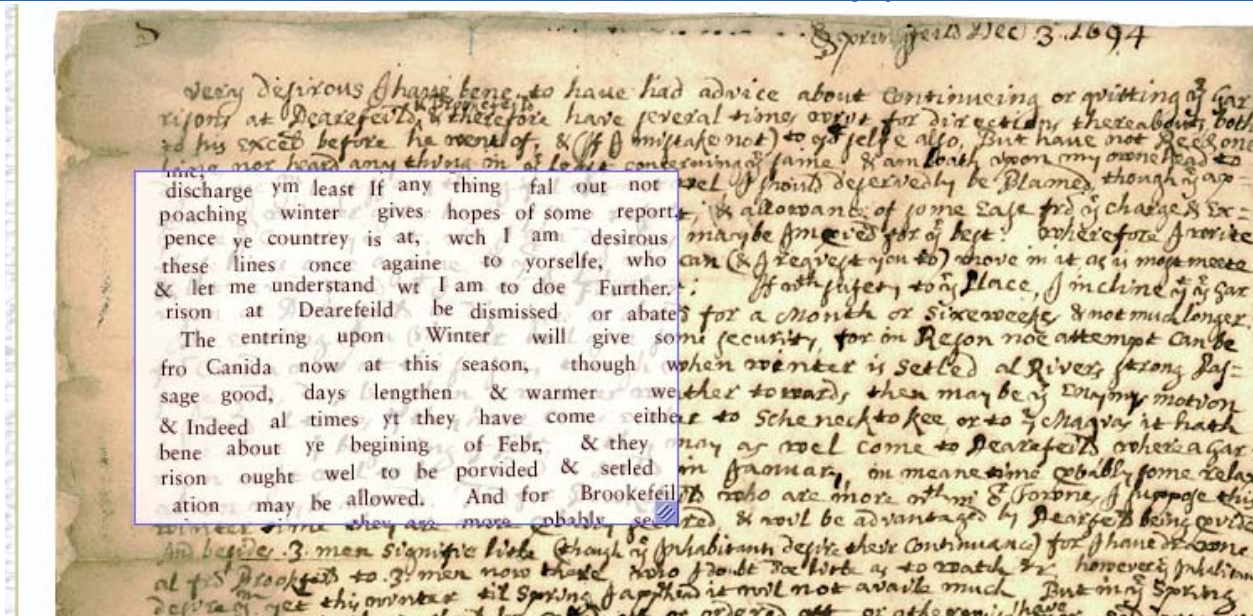 Springfeild Dec 3. 1694
very desirous I have bene, to have had advice about Continueing or quitting ye Gar
& Brookefeild
risons at Dearefeild, & therefore have several times wryt for directions thereabouts, both
to his Excel before he went of, & (If I mistake not) to yor selfe also, But have not Reed one
line, nor heard any thing in ye least concerning ye same & am loath upon my owne head to
discharge ym least If any thing fal out not wel I should deservedly be Blamed, though ye ap=
poaching winter gives hopes of some report, & allowance of some Ease fro ye charge & Ex=
pence ye countrey is at, wch I am desirous may be Improved for ye best: Wherefore I write
these lines once againe to yorselfe, who can (& I request you to) move in it as is most meete
& let me understand wt I am to doe Further: If wth safety to ye Place, I incline yt ye Gar
rison at Dearefeild be dismissed or abated for a Month or Sixe weeks, & not much longer,
The entring upon Winter will give some security, for in Reson noe attempt Can be
fro Canida now at this season, though when winter is Setled al Rivers strong Pas=
sage good, days lengthen & warmer wether towards, then may be ye Enemys motion
& Indeed al times yt they have come either to Schenecktokee, or to ye Maquas it hath
bene about ye begining of Febr, & they may as wel come to Dearefeild where a Gar
rison ought wel to be porvided & setled in January, in meane time pbably some relax
ation may be allowed. And for Brookefeild who are more wthin Towne, I suppose this
winter time they are more pbably secured, & wil be advantaged by Dearfeild being pvided
And besides .3. men signifie litle (though ye Inhabitants desire their Continuance) for I have drawne
al fro Brookfeild to .3. men now there, who I doubt doe litle as to watch &c however ye Inhabitants
desire ym yet this winter til Spring I apphend it wil not availe much But in ye Spring